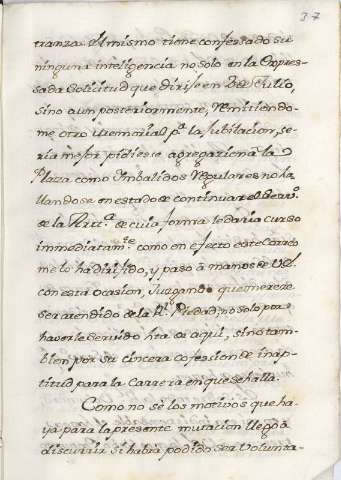 37
tranza. El mismo tiene confesado su
ninguna inteligencia no solo en la Expres-
sada Solicitud que dirise en de Julio,
sino aun posteriormente, Remitiendo-
me otro Memorial pª la Jubilacion, se-
ria mejor pidiese agregacion à la
Plaza como Imbalidos Regulares no ha
llandose en estado de continuar el
de la Artª de cuia forma le daria curso
immediatamte como en efecto este Correo
me lo ha dirijido, y paso à manos de V.E.
con esta ocasion, Juzgando que merece
ser atendido de la Rl Piedad, no solo por
haverle servido hta os aqui, sino tam-
bien por su cincera cofession de inap-
titud para la Carrera en que se halla.
Como no sé los motivos que ha-
ya para la presente mutacion llego à
discurrir si habrá podido ser volunta-